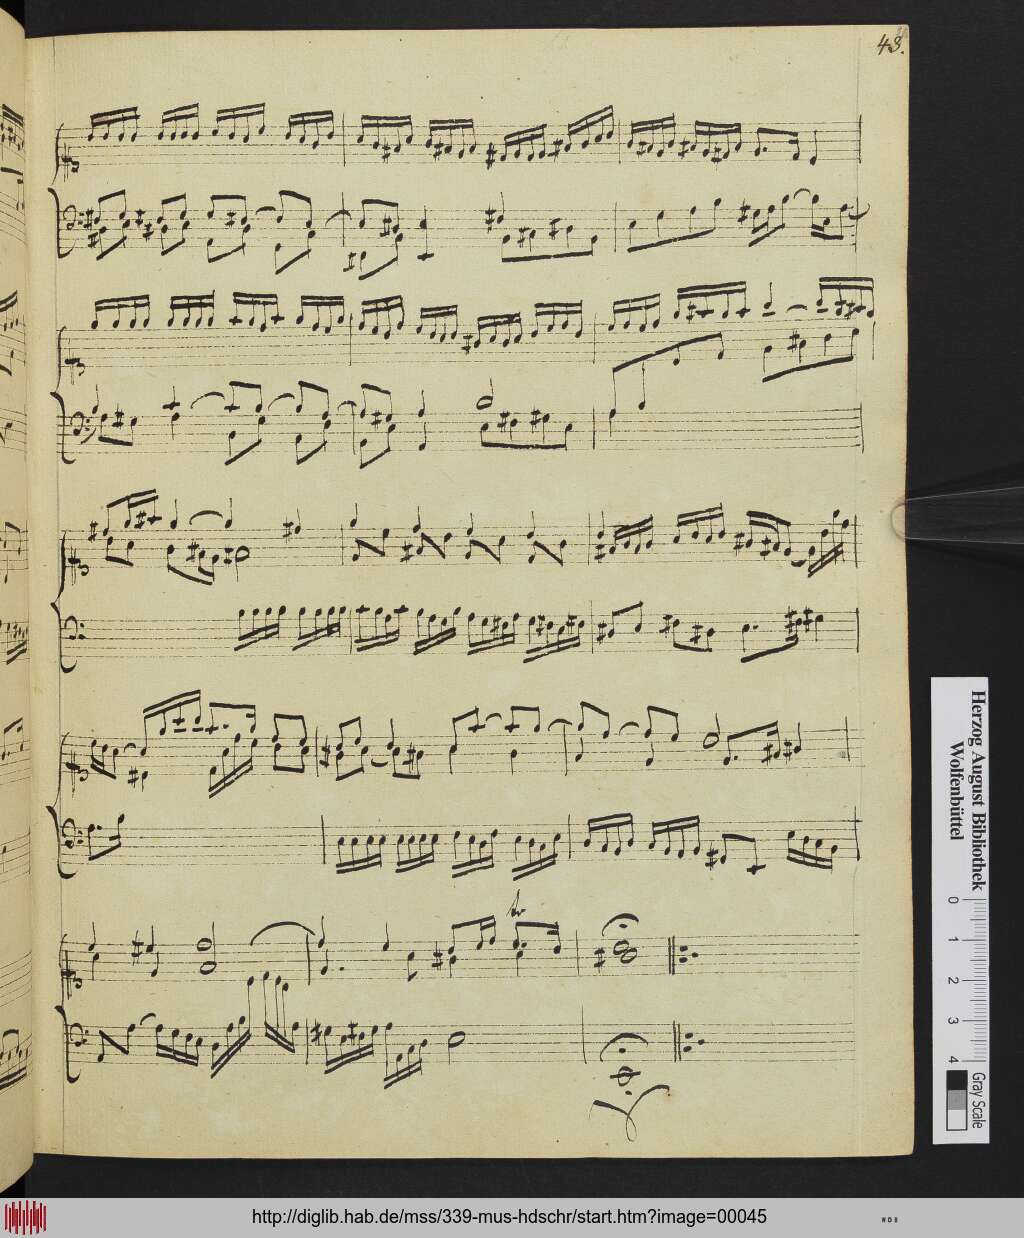 43.
tr
Herzog August Bibliothek
Wolfenbüttel
0 1 2 3 4
Gray Scale
http://diglib.hab.de/mss/339-mus-hdschr/start.htm?image=00045